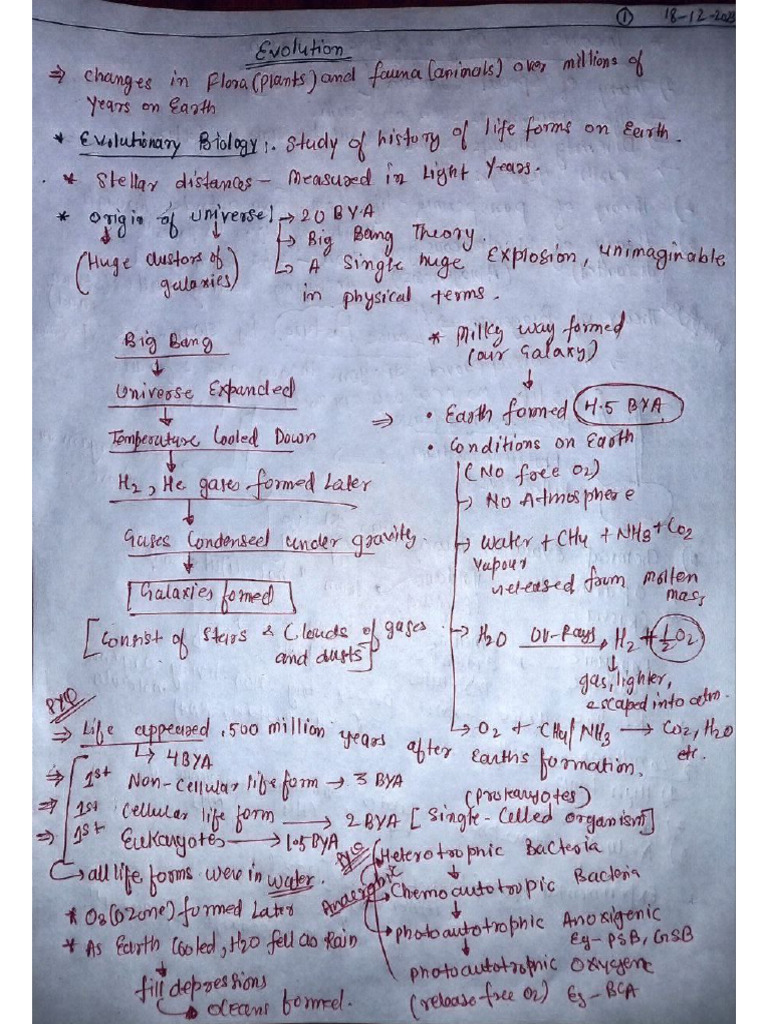 ① 18-12-2023
Evolution
⇒ changes in Flora (plants) and fauna (animals) over millions of
years on Earth
* Evolutionary Biology:. Study of history of life forms on Earth.
* Stellar distances – Measured in Light Years.
* Origin of universe! → 20 BYA
(Huge clustors of galaxies)
↳ Big Bang Theory.
↳ A single huge explosion, unimaginable
in physical terms.
Big Bang
↓
Universe Expanded
↓
Temperature Cooled Down
↓
H2, He gases formed Later
↓
Gases Condensed under gravity.
↓
Galaxies formed
[Consist of stars & Clouds of gases
and dusts]
* Milky way formed
(our Galaxy)
↓
⇒ • Earth formed 4.5 BYA
• Conditions on Earth
(No free O2)
→ No Atmosphere
→ Water + CH4 + NH3 + CO2
Vapour
released from molten
mass
→ H2O UV-Rays, H2 + 1/2 O2
↓
gas, lighter,
escaped into atm.
↳ O2 + CH4/NH3 → CO2, H2O
etc.
PYQ
⇒ Life appeared, 500 million years after Earths formation.
↳ 4BYA
⇒ 1st Non-Cellular life form → 3 BYA
⇒ 1st Cellular life form → 2 BYA [Single-Celled organism]
(Prokaryotes)
⇒ 1st Eukaryotes → 1.5 BYA
↳ all life forms were in water.
* O3 (ozone) formed Later
* As Earth Cooled, H2O fell as Rain
↓
fill depressions
↳ oceans formed.
PYQ
Anaerobic
Heterotrophic Bacteria
↓
Chemoautotropic Bacteria
↓
photoautotrophic Anoxigenic
Eg – PSB, GSB
↓
photoautotrophic Oxygenic
(release free O2) Eg – BGA